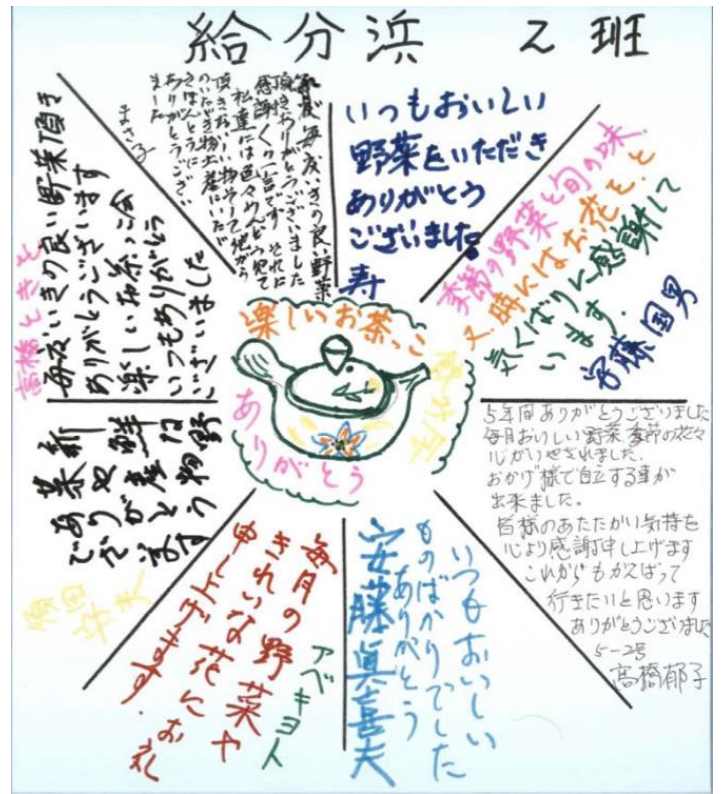 給分浜 2班
いつもおいしい
野菜をいただき
ありがとう
ございました。
寿
季節の野菜と旬の味、
又、時にはお花をと
気くばりに感謝して
います。
安藤国男
5年間ありがとうございました
毎月おいしい野菜季節の花々
心がいやされました。
おかげ様で自立する事が
出来ました。
皆様のあたたかい気持を
心より感謝申し上げます
これからもがんばって
行きたいと思います
ありがとうございました
5-2号
高橋郁子
いつもおいしい
ものばかりでした
ありがとう
安藤眞喜夫
毎月の野菜や
きれいな花にお礼
申し上げます。
アベキヨト
新鮮な野
菜や産物
ありがとう
ございます
須田
毎度、いきの良い野菜頂き
ありがとうございます
楽しいお茶っこ会
いつもありがとう
ございました
高橋ときを
毎度いきの良い野菜
頂きありがとうございました
感謝の言です それは
私達には色々めんどう見て
ほんとうに
ありがとうござい
ました
まさ子
楽しいお茶っこ
ありがとう